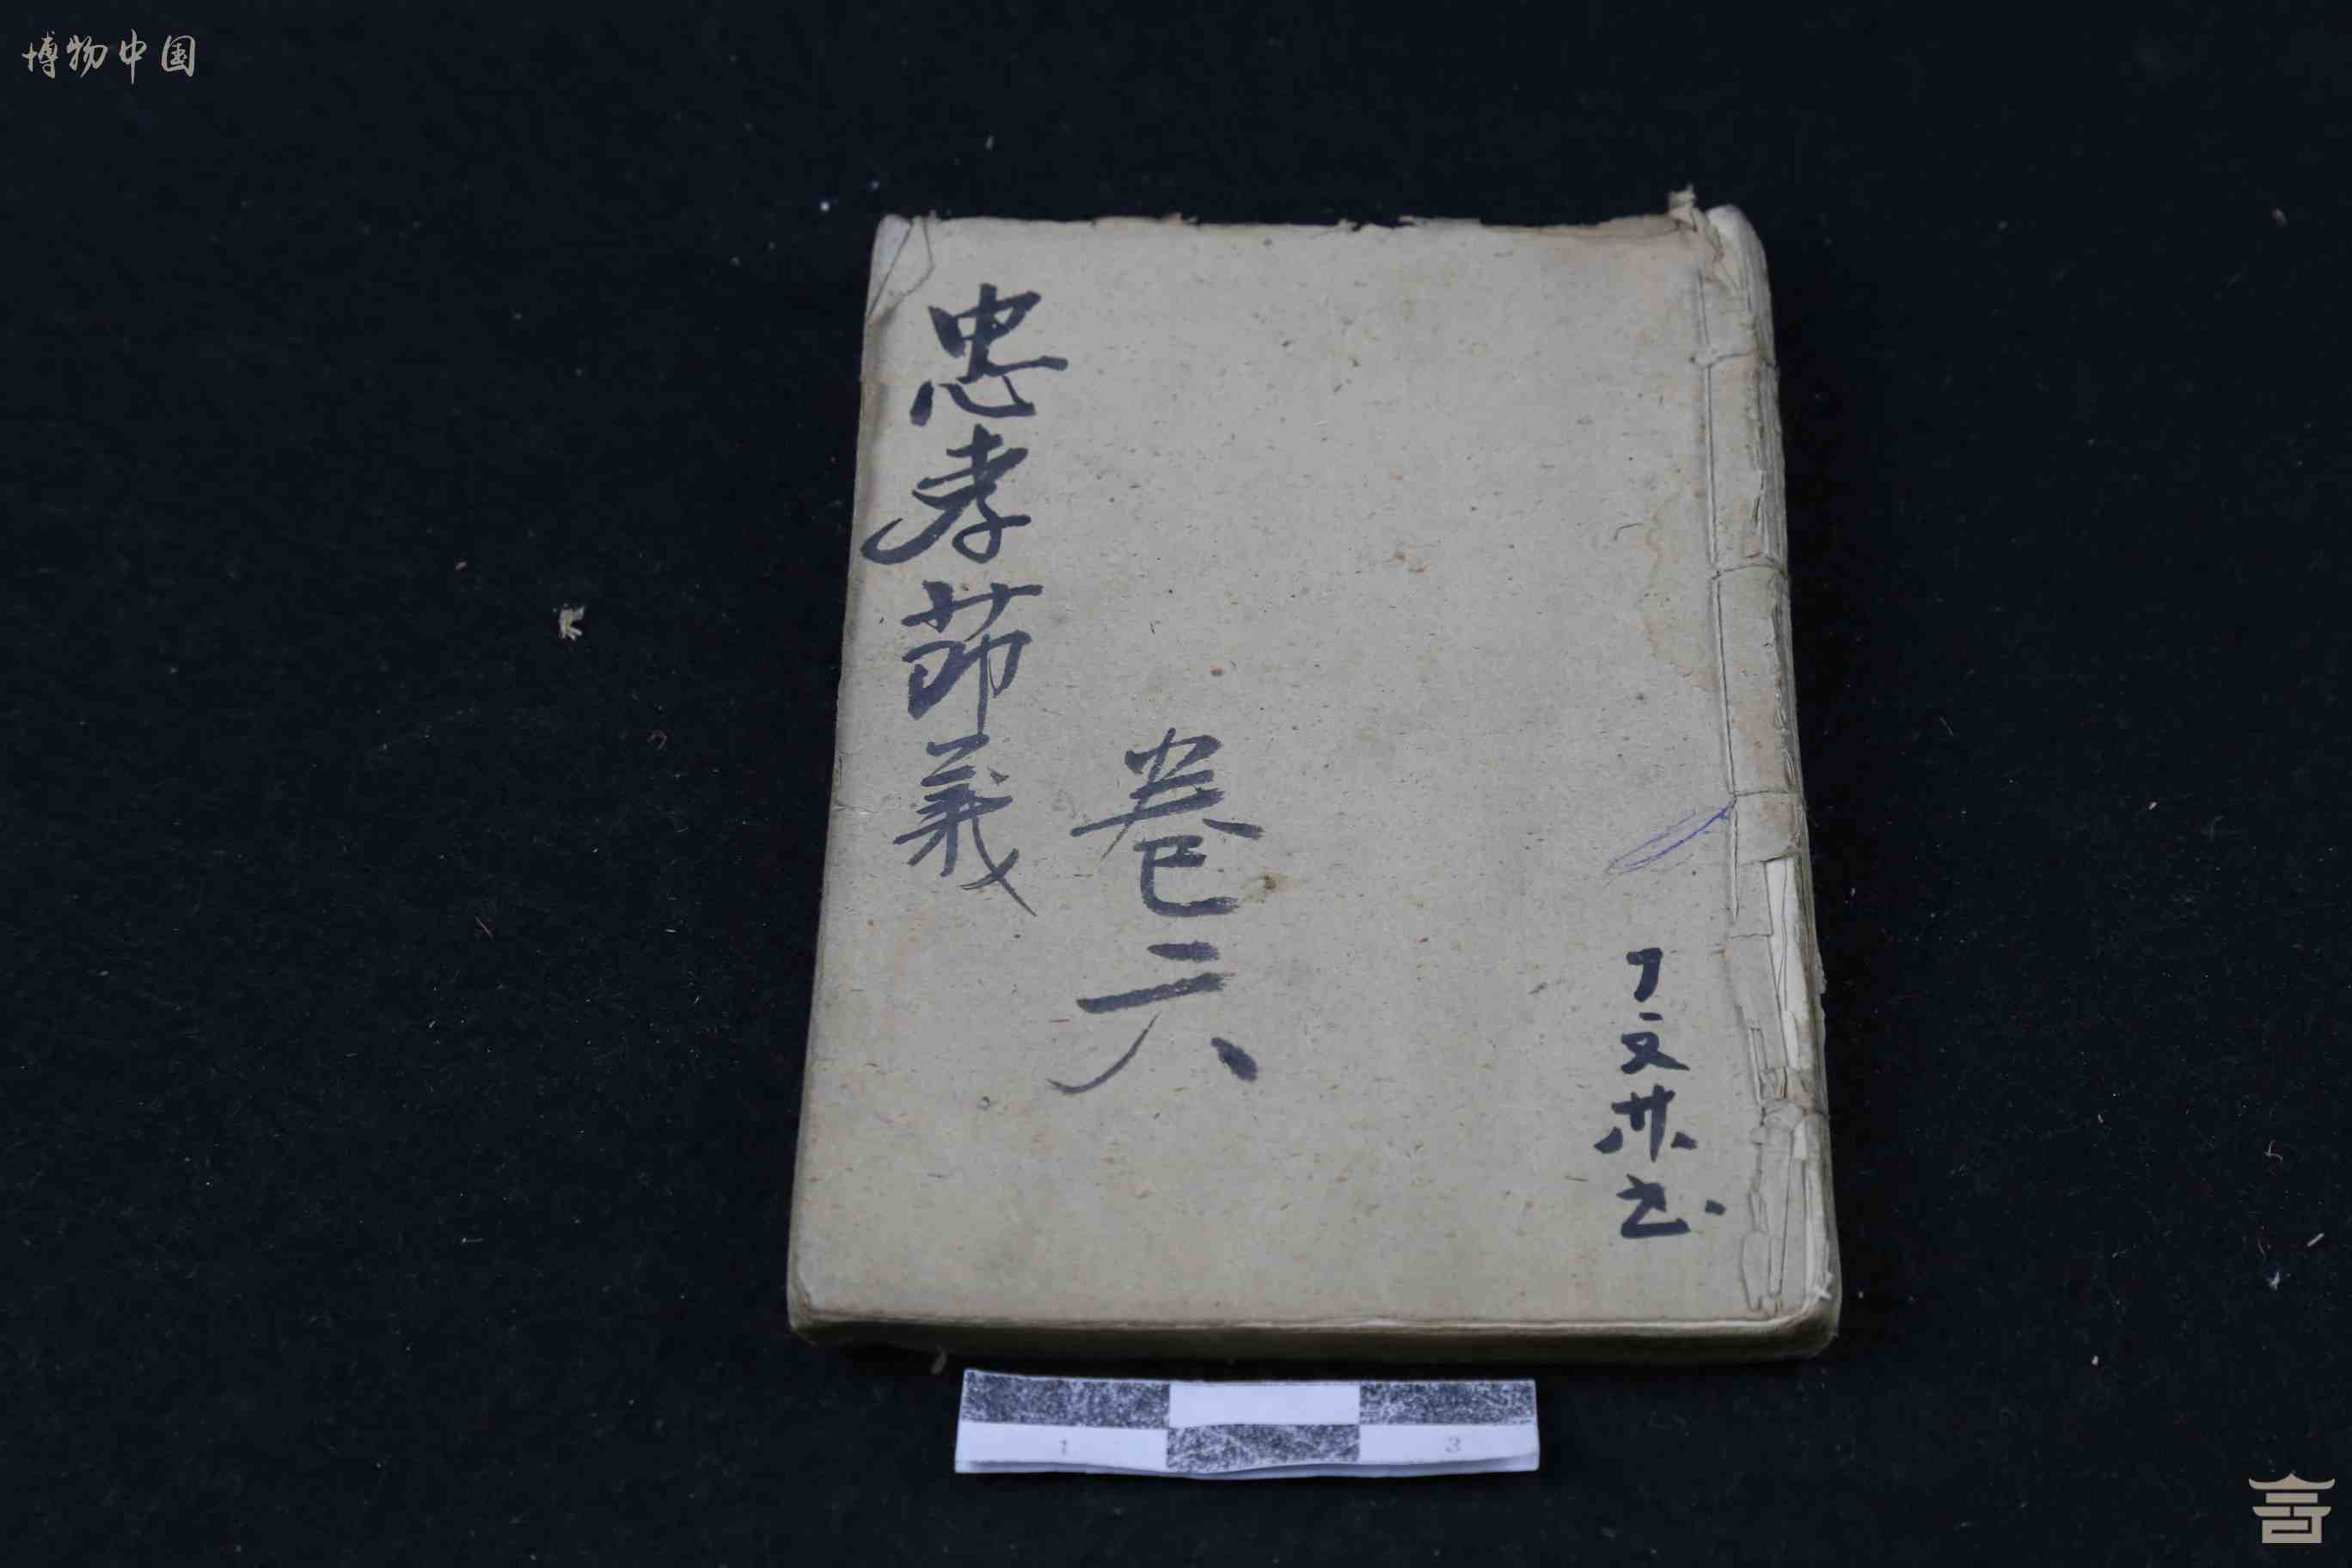 博物中国
忠孝節義
卷六
丁文林記
1 3